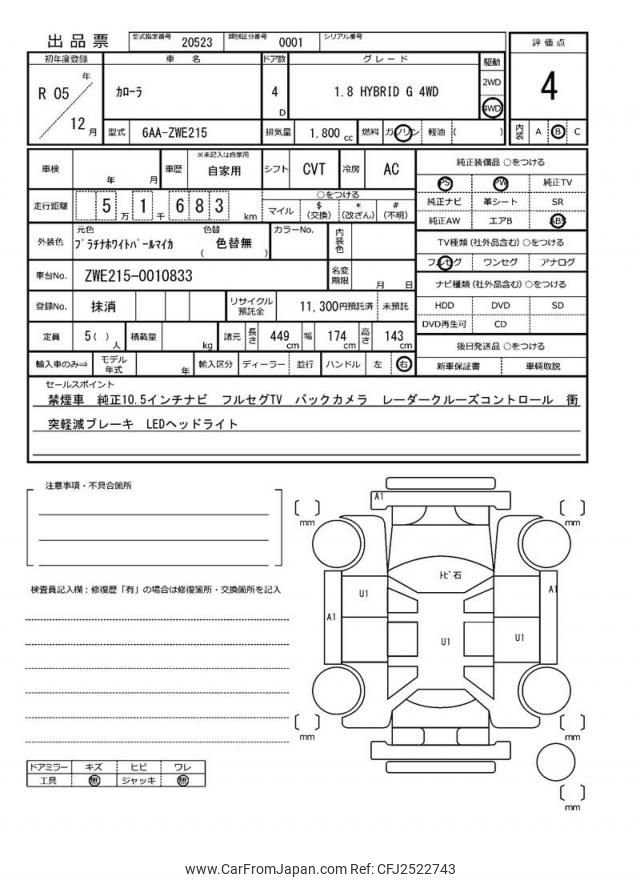 出品票
型式指定番号 20523 類別区分番号 0001 シリアル番号
初年度登録 車名 ドア数 グレード 駆動 評価点
R 05 年 12 月
カローラ 4 D 1.8 HYBRID G 4WD 2WD 4WD 4
型式 6AA-ZWE215 排気量 1,800 cc 燃料 ガソリン 軽油 ( ) 内装 A B C
車検 年 月 車歴 ※未記入は自家用 自家用 シフト CVT 冷房 AC
走行距離 5 万 1 千 6 8 3 km
○をつける
マイル $ (交換) * (改ざん) # (不明)
外装色 元色 プラチナホワイトパールマイカ 色替 ( 色替無 ) カラーNo. 内装色
車台No. ZWE215-0010833 名変期限 月 日
登録No. 抹消 リサイクル預託金 11,300円預託済 未預託
定員 5( ) 人 積載量 kg 諸元 長さ 449 cm 幅 174 cm 高さ 143 cm
輸入車のみ⇒ モデル年式 年 輸入区分 ディーラー 並行 ハンドル 左 右
純正装備品 ○をつける
PS PW 純正TV
純正ナビ 革シート SR
純正AW エアB ABS
TV種類(社外品含む) ○をつける
フルセグ ワンセグ アナログ
ナビ種類(社外品含む) ○をつける
HDD DVD SD
DVD再生可 CD
後日発送品 ○をつける
新車保証書 車輌取説
セールスポイント
禁煙車 純正10.5インチナビ フルセグTV バックカメラ レーダークルーズコントロール 衝
突軽減ブレーキ LEDヘッドライト
注意事項・不具合箇所
検査員記入欄:修復歴「有」の場合は修復箇所・交換箇所を記入
ドアミラー キズ ヒビ ワレ
工具 無 ジャッキ 無
A1
mm
mm
トビ石
U1
A1
A1
U1
U1
mm
mm
mm
www.CarFromJapan.com Ref: CFJ2522743